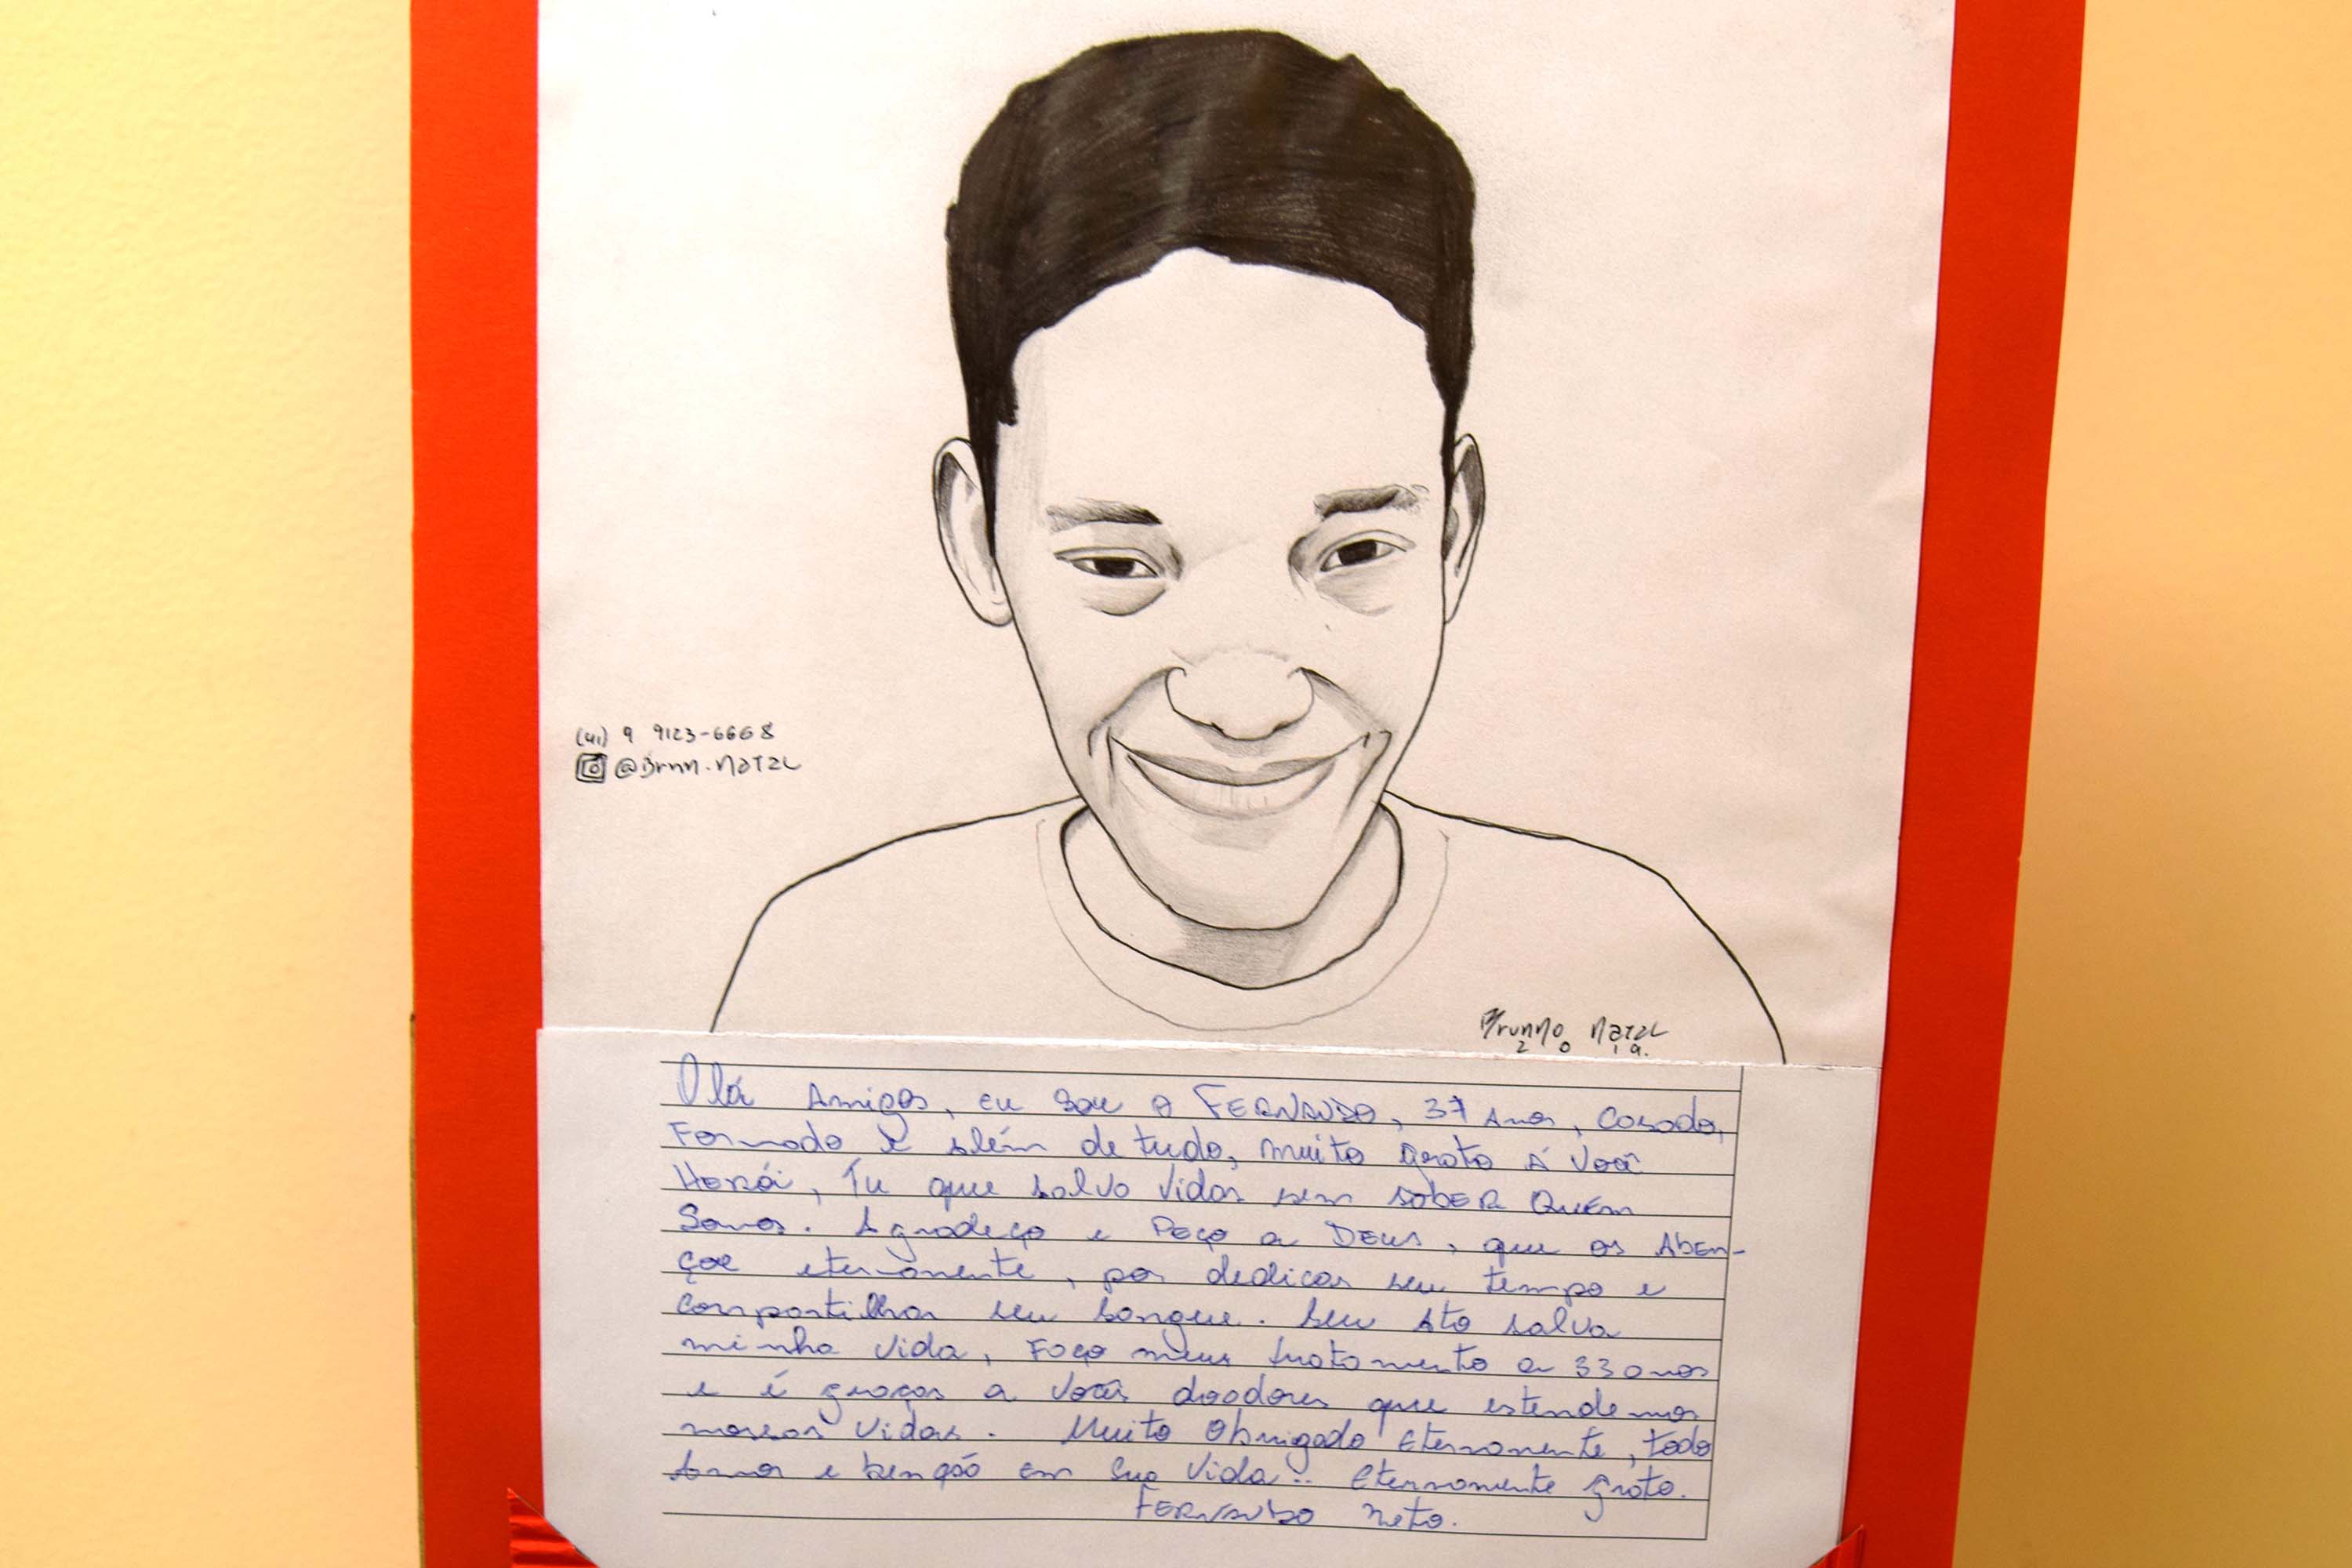 (41) 9 9123-6668
@Brnn.natal
Brunno Natal
2019.
Olá Amigos, eu sou o Fernando, 37 Anos, casado,
Formado e além de tudo, muito grato á você
Herói, Tu que salva vidas sem saber Quem
Somos. Agradeço e Peço a Deus, que os Aben-
çoe eternamente, por dedicar seu tempo e
compartilhar seu sangue. Seu Ato salva
minha vida, Faço meus tratamento a 33 anos
e é graças a vocês doadores que estendemos
nossas vidas. Muito Obrigado Eternamente, todo
Amor e benção em sua vida.. Eternamente grato.
Fernando Neto.